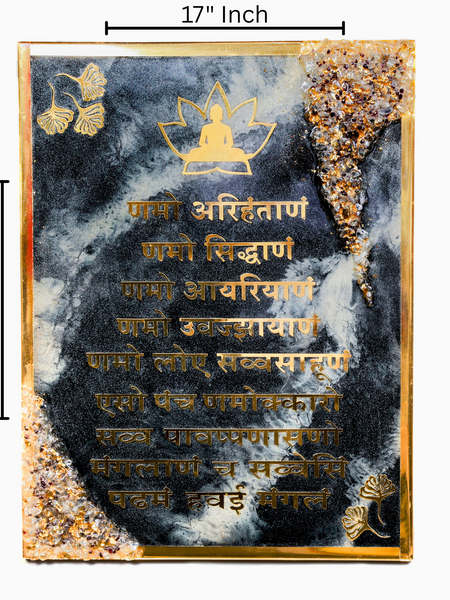 17" Inch
णमो अरिहंताणं
णमो सिद्धाणं
णमो आयरियाणं
णमो उवज्झायाणं
णमो लोए सव्वसाहूणं
एसो पंच णमोक्कारो
सव्व पावप्पणासणो
मंगलाणं च सव्वेसिं
पढमं हवई मंगलं